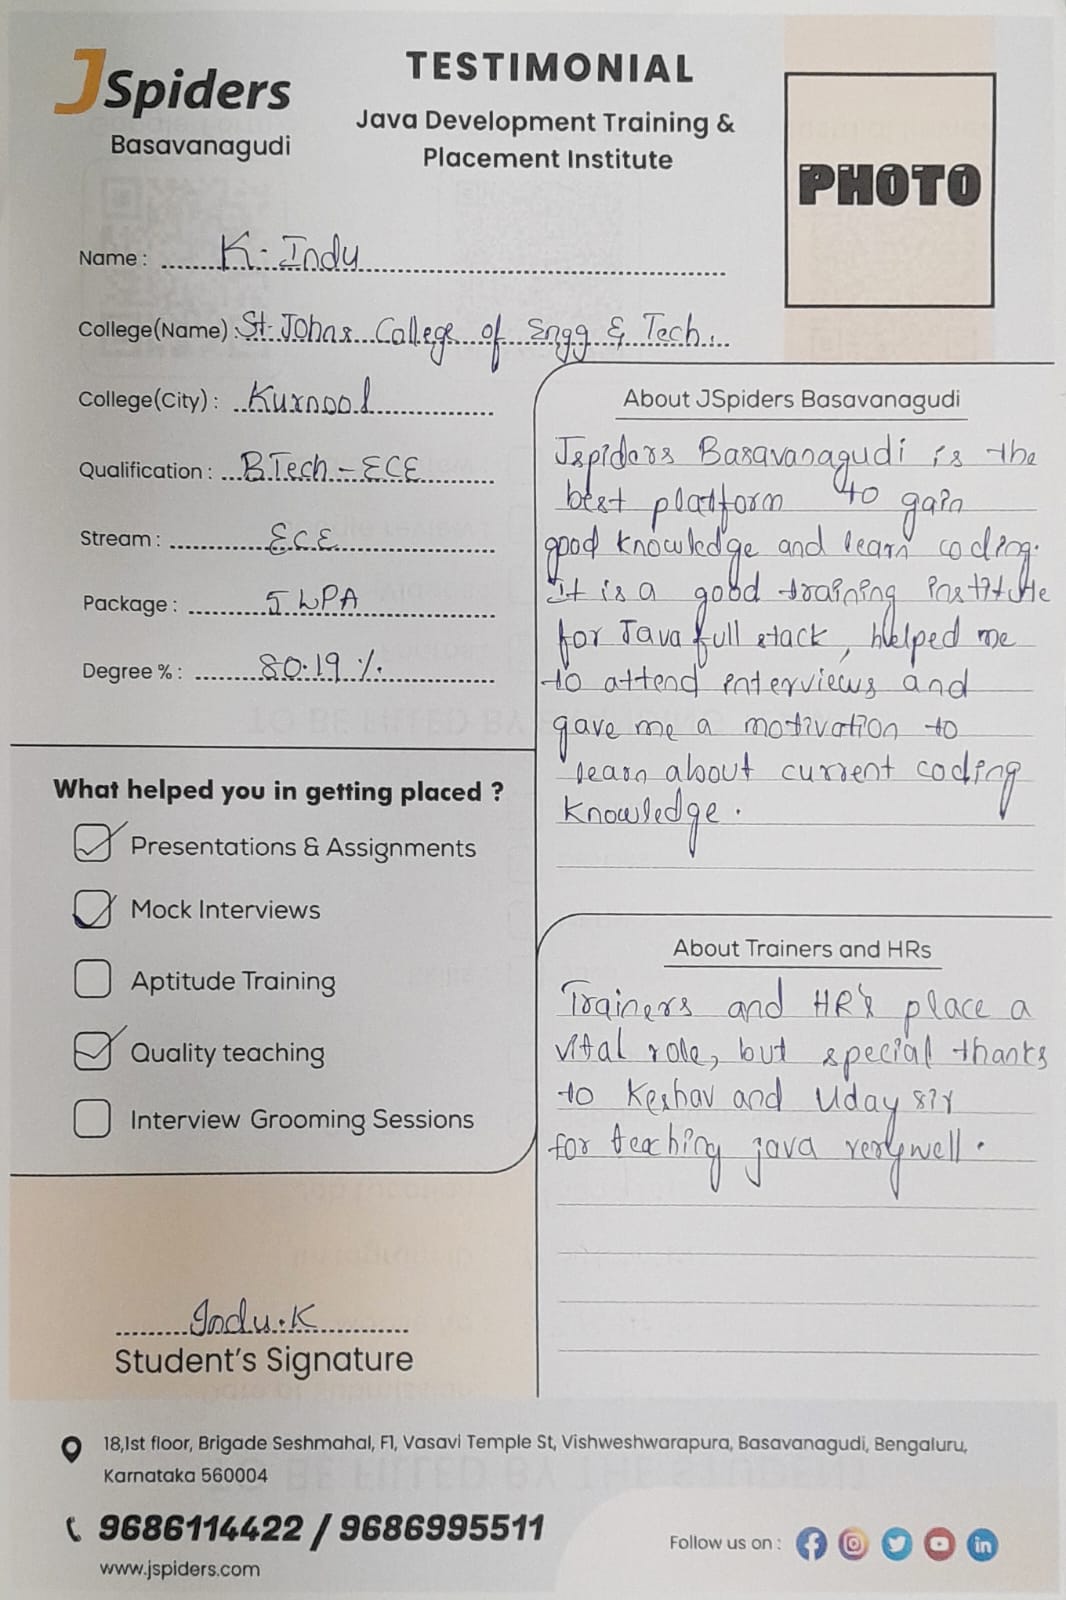 JSpiders
Basavanagudi
TESTIMONIAL
Java Development Training &
Placement Institute
PHOTO
Name : K. Indu
College(Name) : St. Johns College of Engg & Tech.
College(City) : Kurnool
Qualification : B.Tech - ECE
Stream : ECE
Package : 5 LPA
Degree % : 80.19 %.
What helped you in getting placed ?
Presentations & Assignments
Mock Interviews
Aptitude Training
Quality teaching
Interview Grooming Sessions
Indu.K
Student's Signature
About JSpiders Basavanagudi
Jspiders Basavanagudi is the
best platform to gain
good knowledge and learn coding.
It is a good training institute
for Java full stack, helped me
to attend interviews and
gave me a motivation to
learn about current coding
knowledge.
About Trainers and HRs
Trainers and HR's place a
vital role, but special thanks
to Keshav and Uday sir
for teaching java verywell.
18,1st floor, Brigade Seshmahal, F1, Vasavi Temple St, Vishweshwarapura, Basavanagudi, Bengaluru,
Karnataka 560004
9686114422 / 9686995511
www.jspiders.com
Follow us on :